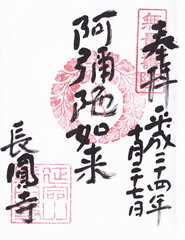 奉拝
平成二十四年
十月二十七日
阿彌陀如来
長鳳寺
延命山